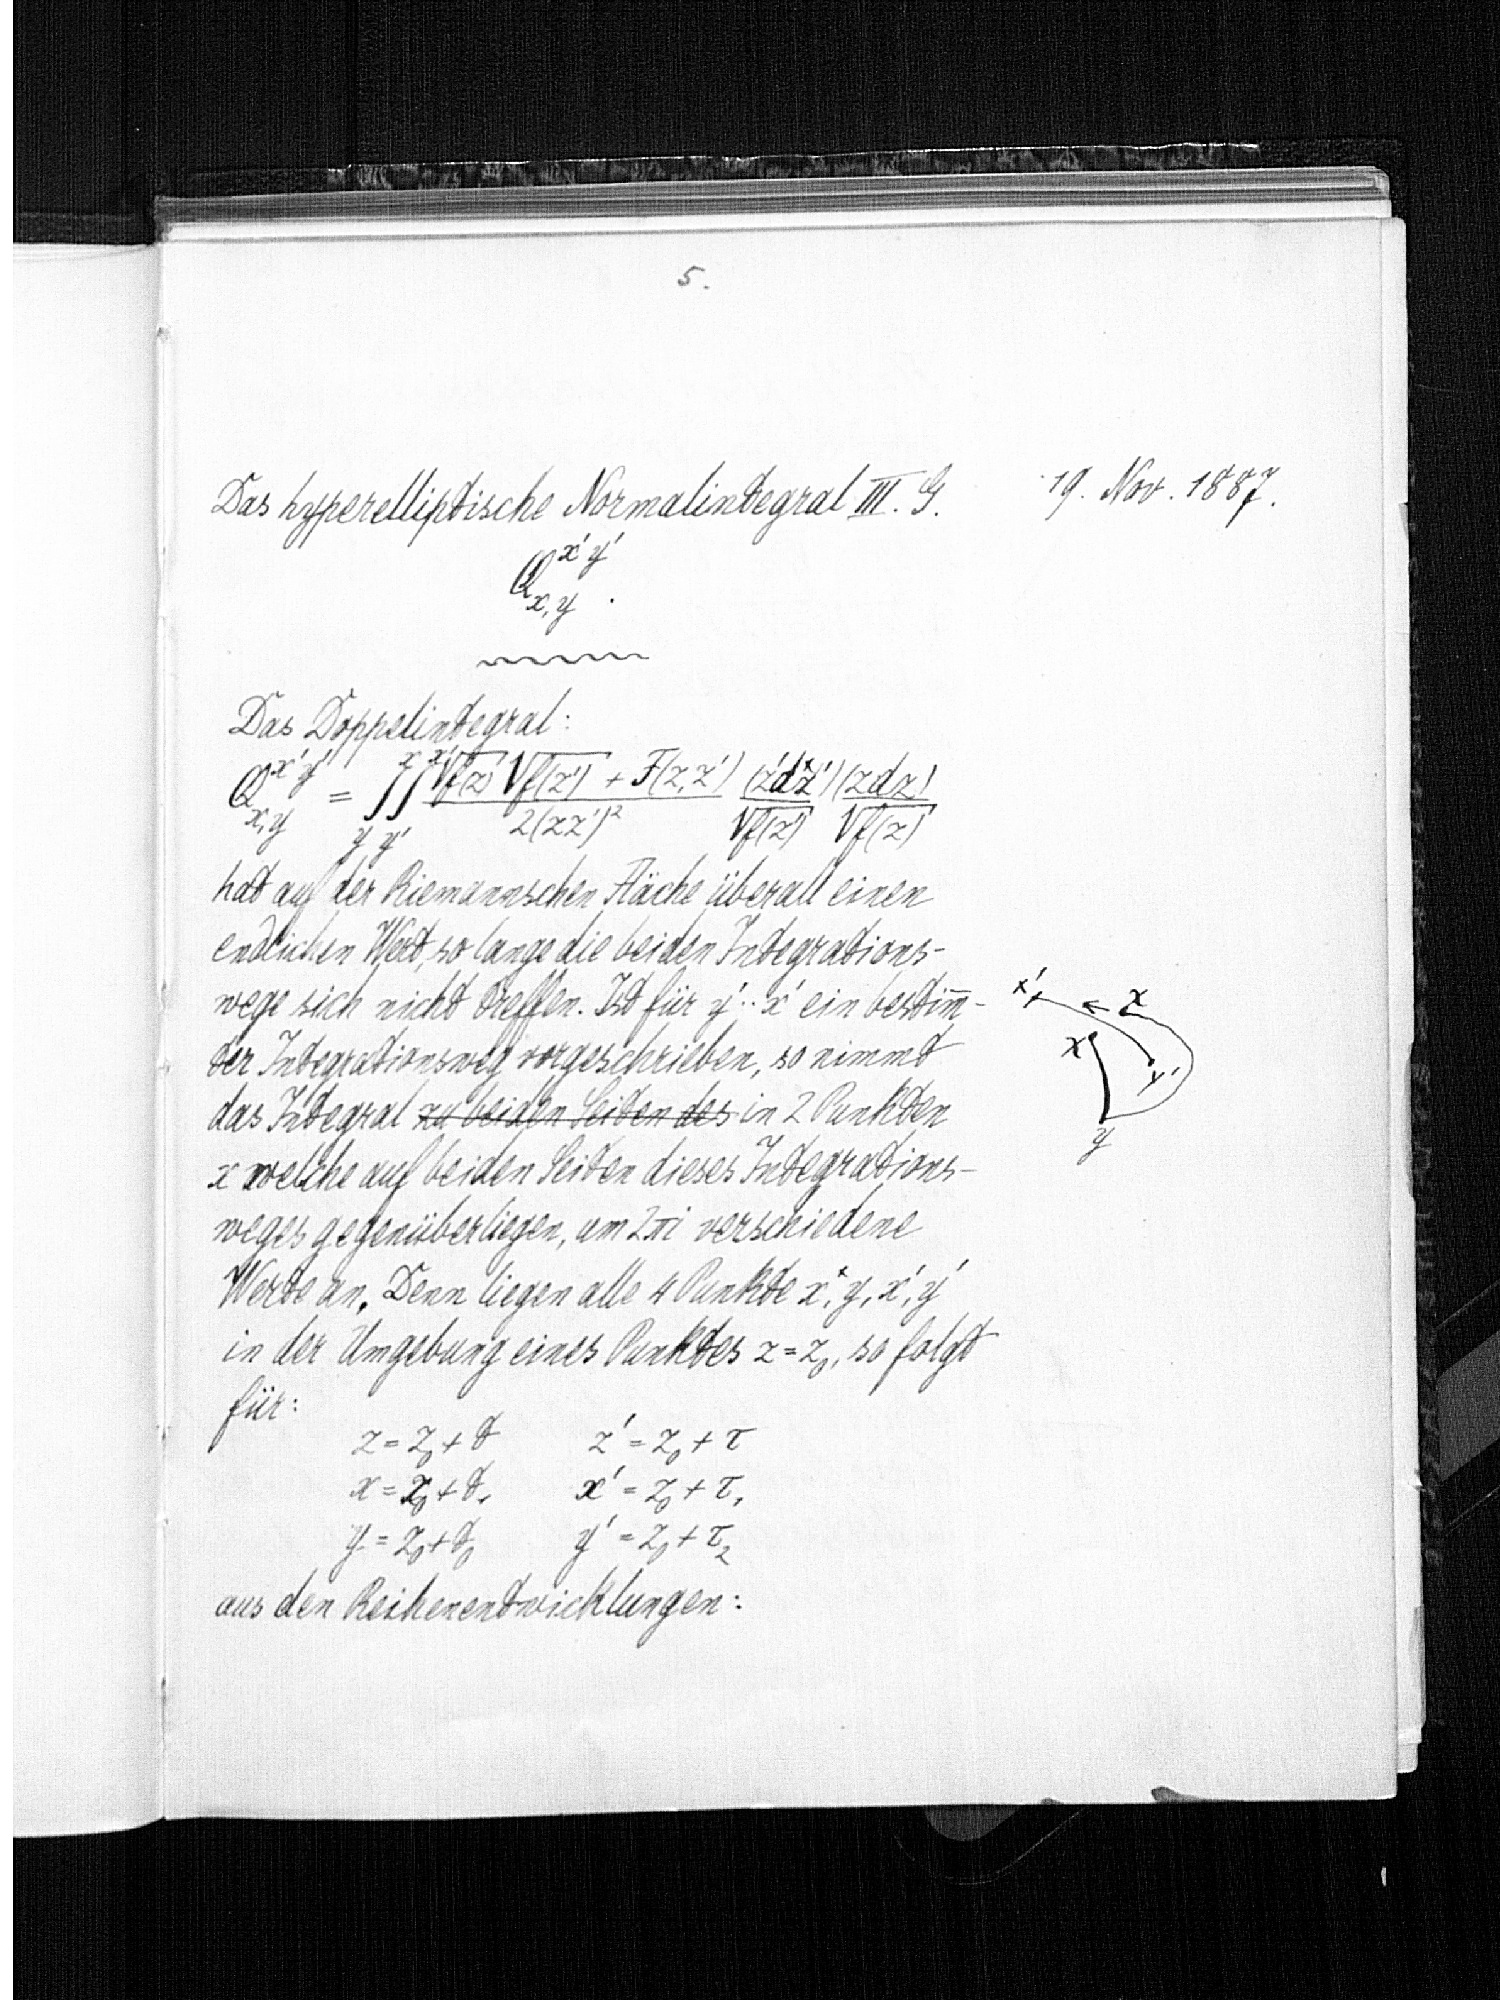 5.
Das hyperelliptische Normalintegral III. G. 19. Nov. 1887.
Q^{x' y'}_{x, y}.
Das Doppelintegral:
Q^{x' y'}_{x, y} = ∫_y^x ∫_{y'}^{x'} (√f(z) √f(z') + F(z, z')) / 2(zz')² (z'dz')/√f(z') (zdz)/√f(z)
hat auf der Riemannschen Fläche überall einen
endlichen Wert, so lange die beiden Integrations-
wege sich nicht treffen. Ist für y'··x' ein bestim̅-
ter Integrationsweg vorgeschrieben, so nimmt
das Integral zu beiden Seiten des in 2 Punkten
x welche auf beiden Seiten dieses Integrations-
weges gegenüberliegen, um 2πi verschiedene
Werte an. Denn liegen alle 4 Punkte x, y, x', y'
in der Umgebung eines Punktes z = z₀, so folgt
für:
z = z₀ + t z' = z₀ + τ
x = z₀ + t₁ x' = z₀ + τ₁
y = z₀ + t₀ y' = z₀ + τ₂
aus den Reihenentwicklungen:
x'
x
x
y'
y